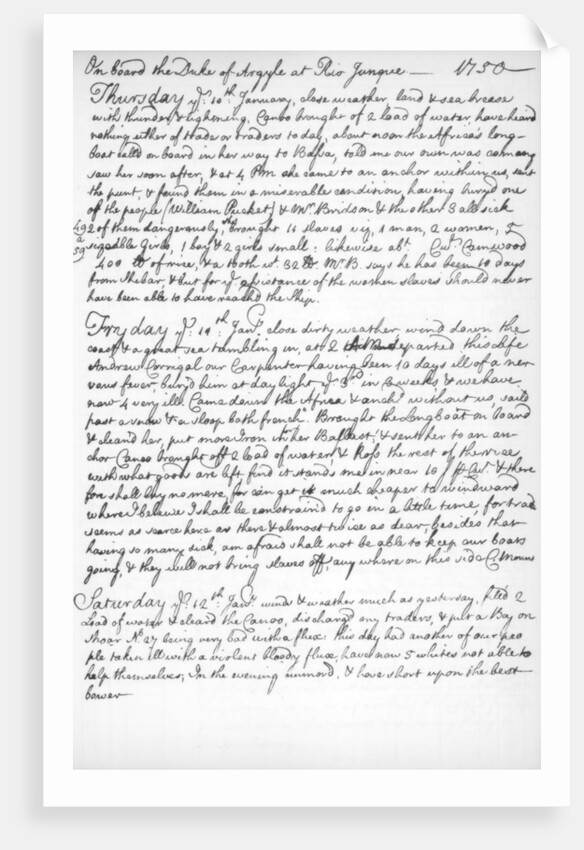 On board the Duke of Argyle at Rio Junque — 1750
Thursday ye. 10th January, close weather, land & sea breese
with thunder & lightning. Canoo brought of 2 load of water, have heard
nothing either of trade or traders to day, about noon the Affrica's long-
boat calld on board in her way to Bassa, told me our own was coming
saw her soon after, & at 4 PM she came to an anchor within us, sent
the punt, & found them in a miserable condition, having buryd one
of the people (William Pucket) & Mr. Bridson & the other 3 all sick
2 of them dangerously, brought 11 slaves viz, 1 man, 2 women,
sizeable Girls, 1 boy & 2 girls small: likewise abt. Cwt. Camwood
49 a 59
400 lb of rice, & a tooth wt. 32 lb. Mr. B. says he has been 10 days
from Shebar, & but for ye. assistance of the women slaves should never
have been able to have reachd the Ship.
Fryday ye. 11th Jany. close dirty weather, wind down the
coast & a great sea tumbling in, at 2 departed this life
Andrew Corrigal our Carpenter having been 10 days ill of a ner
vous fever, buryd him at day light ye. 3rd in weeks & we have
now 4 very ill. Came down the Africa & anchd. without us, saild
past a snow & a sloop both french. Brought the Longboat on board
& cleand her, put more Iron in her Ballast, & sent her to an an-
chor Canoo brought off 2 load of water, & the rest of the rice
with what goods are left, find it stands me in near 10/ Cwt. & there
fore shall buy no more, for can get it much cheaper to windward
where I believe I shall be constraind to go in a little time, for trade
seems as scarce here as there & almost twice as dear, besides that
having so many sick, am afraid shall not be able to keep our boats
going, & they will not bring slaves off, any where on this side C. Mount
Saturday ye. 12th Jany. wind & weather much as yesterday, filled 2
Load of water & cleard the Canoo, dischargd my traders, & put a Boy on
Shoar No. 27 being very bad with a flux: this day had another of our peo
ple taken ill with a violent bloody flux, have now 5 whites not able to
help themselves; In the evening unmord, & have short upon the best
bower